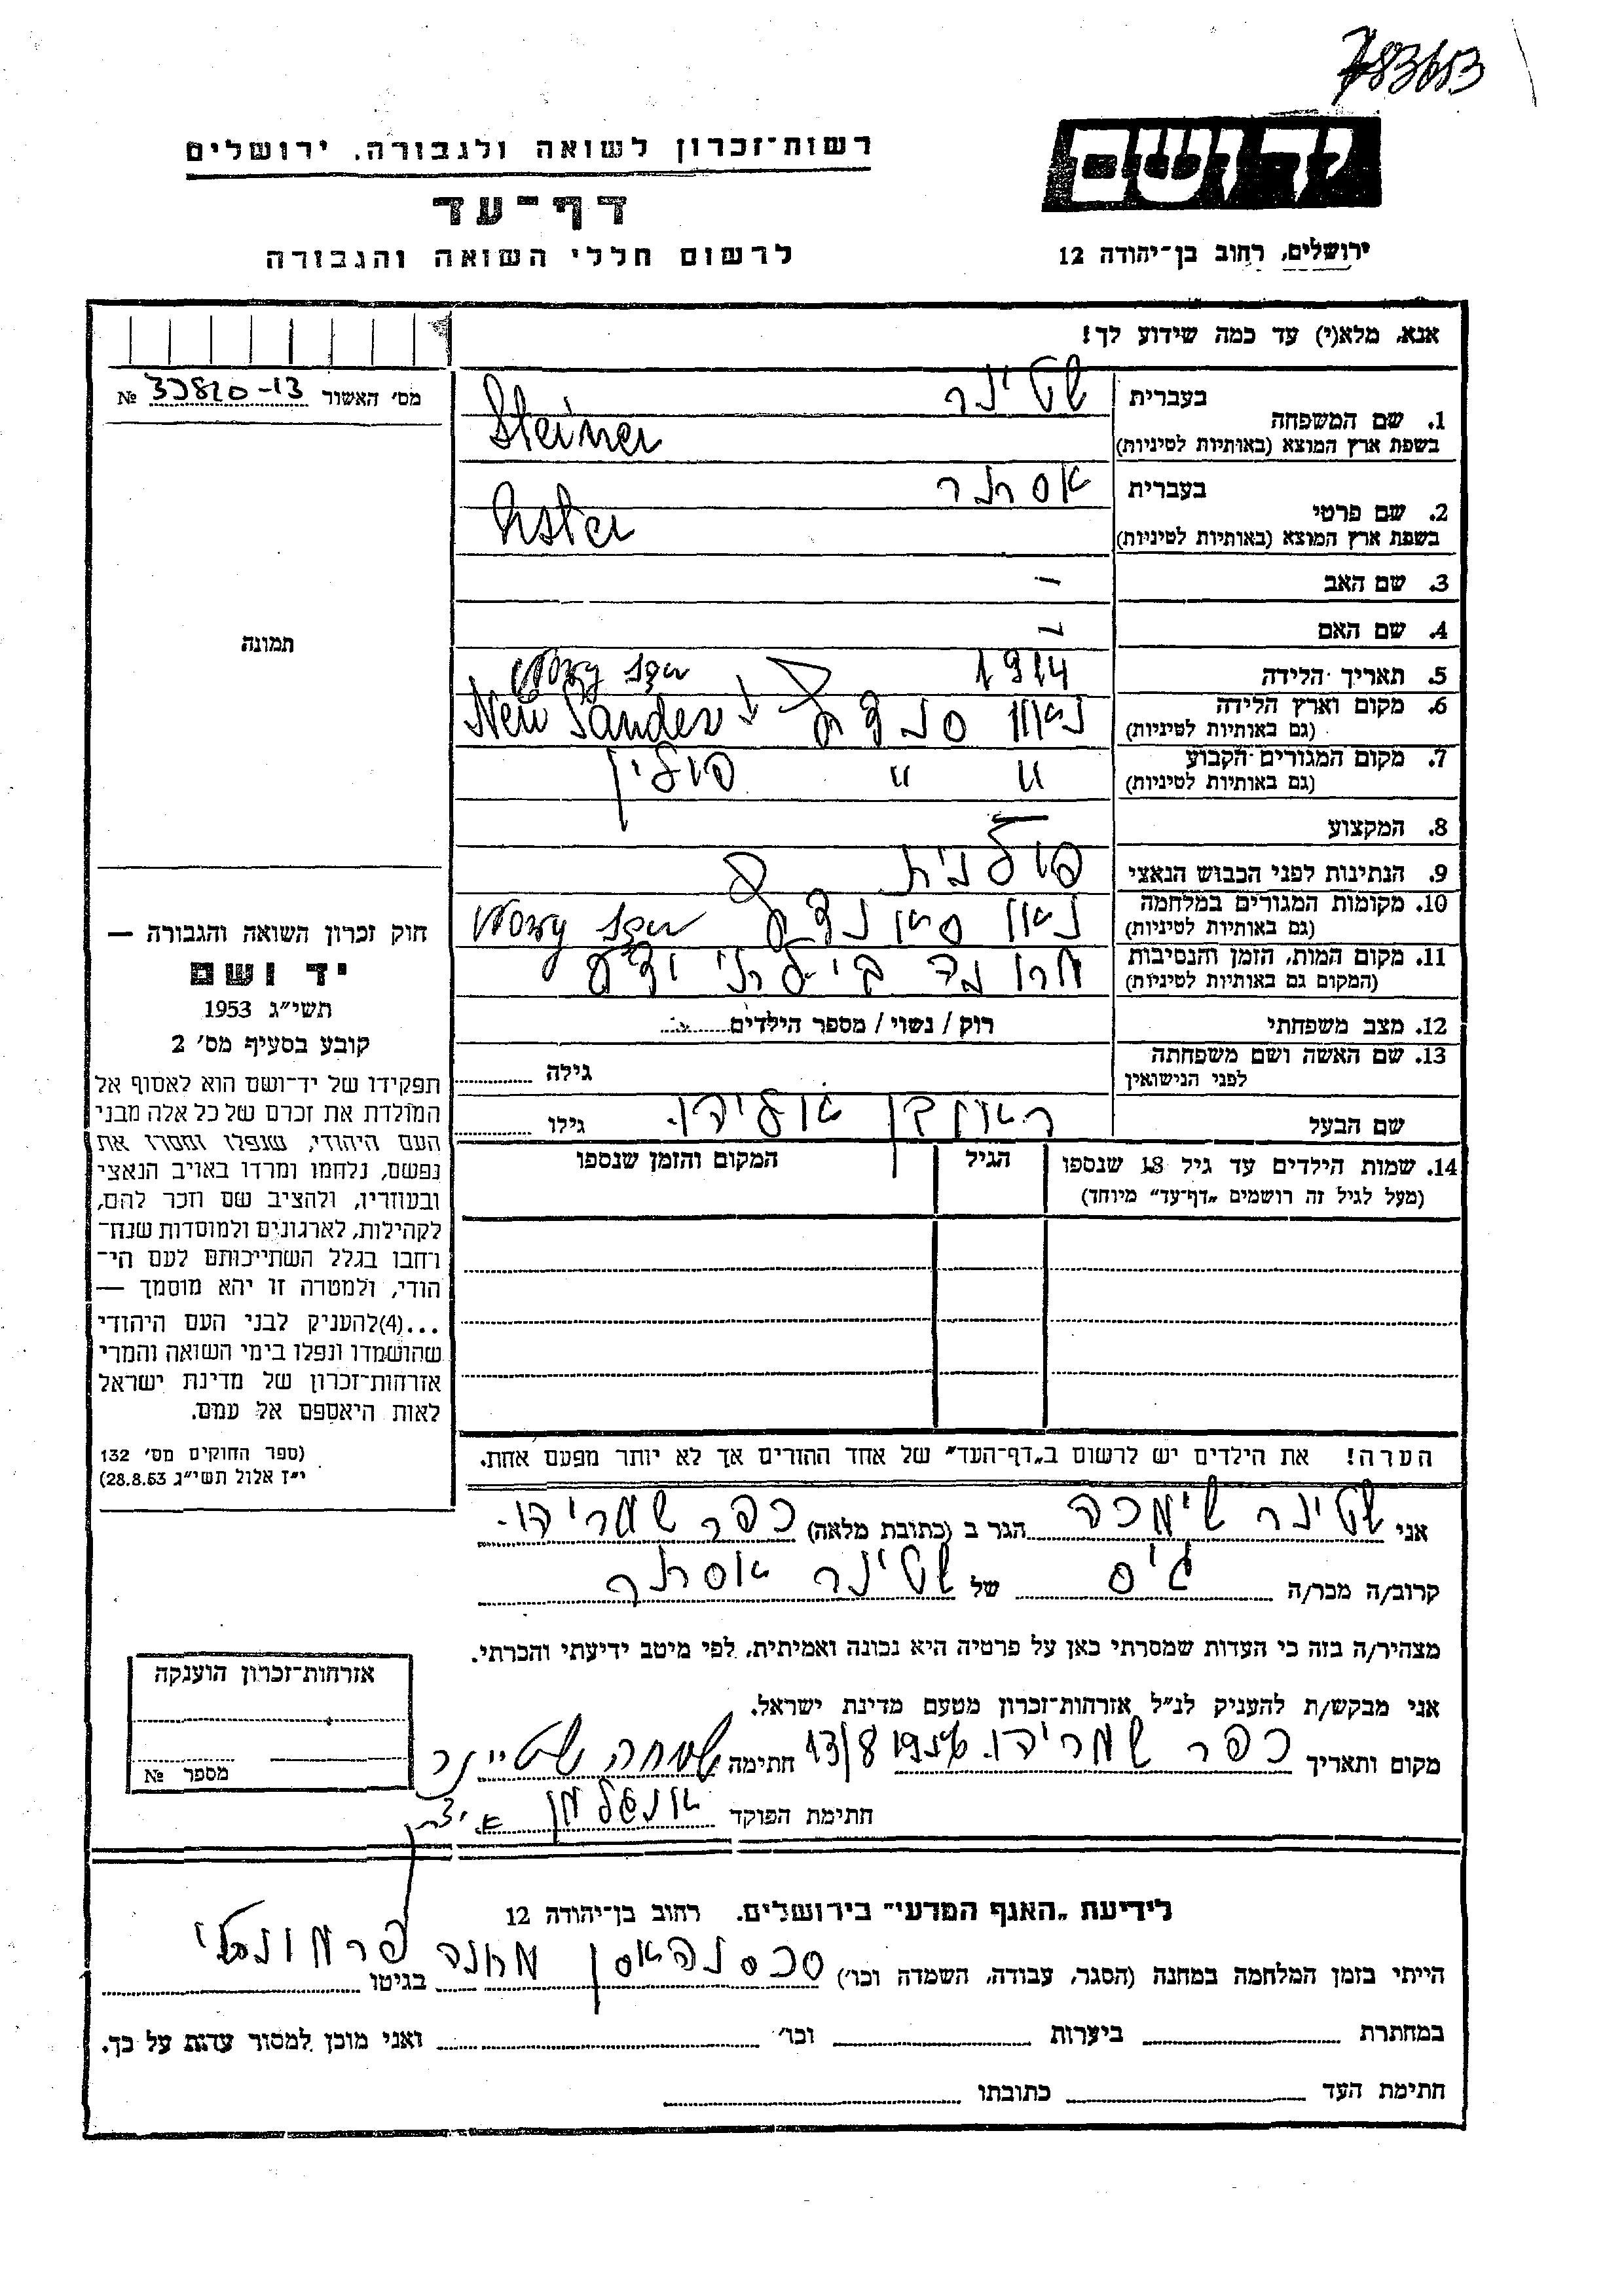 783653
יד ושם
רשות־זכרון לשואה ולגבורה, ירושלים
דף־עד
לרשום חללי השואה והגבורה
ירושלים, רחוב בן־יהודה 12
אנא, מלא(י) עד כמה שידוע לך!
מס׳ האשור 33820-13 №
1. שם המשפחה
בעברית שטינר
בשפת ארץ המוצא (באותיות לטיניות) Steiner
2. שם פרטי
בעברית אסתר
בשפת ארץ המוצא (באותיות לטיניות) Ester
3. שם האב –
4. שם האם –
5. תאריך הלידה 1914
Nowy Sącz
6. מקום וארץ הלידה
(גם באותיות לטיניות)
New Sandez
7. מקום המגורים הקבוע
(גם באותיות לטיניות)
" " פולין
8. המקצוע –
9. הנתינות לפני הכבוש הנאצי פולנית
10. מקומות המגורים במלחמה
(גם באותיות לטיניות)
Nowy Sącz
11. מקום המות, הזמן והנסיבות
(המקום גם באותיות לטיניות)
12. מצב משפחתי רוק / נשוי / מספר הילדים
13. שם האשה ושם משפחתה
לפני הנישואין
גילה
שם הבעל
גילו
14. שמות הילדים עד גיל 18 שנספו
(מעל לגיל זה רושמים „דף־עד” מיוחד)
הגיל
המקום והזמן שנספו
תמונה
חוק זכרון השואה והגבורה —
יד ושם
תשי״ג 1953
קובע בסעיף מס׳ 2
תפקידו של יד־ושם הוא לאסוף אל
המולדת את זכרם של כל אלה מבני
העם היהודי, שנפלו ומסרו את
נפשם, נלחמו ומרדו באויב הנאצי
ובעוזריו, ולהציב שם וזכר להם,
לקהילות, לארגונים ולמוסדות שנח־
רחבו בגלל השתייכותם לעם הי־
הודי, ולמטרה זו יהא מוסמך —
...(4)להעניק לבני העם היהודי
שהושמדו ונפלו בימי השואה והמרי
אזרחות־זכרון של מדינת ישראל
לאות היאספם אל עמם.
(ספר החוקים מס׳ 132
י״ז אלול תשי״ג 28.8.53)
הערה! את הילדים יש לרשום ב„דף־העד” של אחד ההורים אך לא יותר מפעם אחת.
אני שטינר שימכה הגר ב (כתובת מלאה) כפר שמריהו.
קרוב/ה מכר/ה גיס של שטינר אסתר
מצהיר/ה בזה כי העדות שמסרתי כאן על פרטיה היא נכונה ואמיתית, לפי מיטב ידיעתי והכרתי.
אני מבקש/ת להעניק לנ״ל אזרחות־זכרון מטעם מדינת ישראל.
מקום ותאריך כפר שמריהו. 13/8 1956 חתימה שמחה שטיינר
חתימת הפוקד
אזרחות־זכרון הוענקה
מספר №
לידיעת „האגף המדעי” בירושלים, רחוב בן־יהודה 12
הייתי בזמן המלחמה במחנה (הסגר, עבודה, השמדה וכו׳) מחנה בגיטו
במחתרת ביערות וכו׳ ואני מוכן למסור עדות על כך.
חתימת העד כתובתו